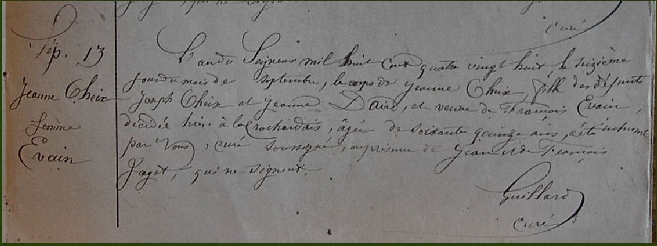 curé
Sép. 13
L'an du Seigneur mil huit cent quatre vingt huit le treizième
jour du mois de Septembre, le corps de Jeanne Cheix, fille des défunts
Jeanne Cheix
Joseph Cheix et Jeanne Daix, et veuve de François Evain,
femme
décédée hier à la Rochardais, âgée de soixante quinze ans, a été inhumé
Evain
par Nous, curé soussigné, en présence de Jean et de François
Jagot, qui ne signent.
Guillard
curé